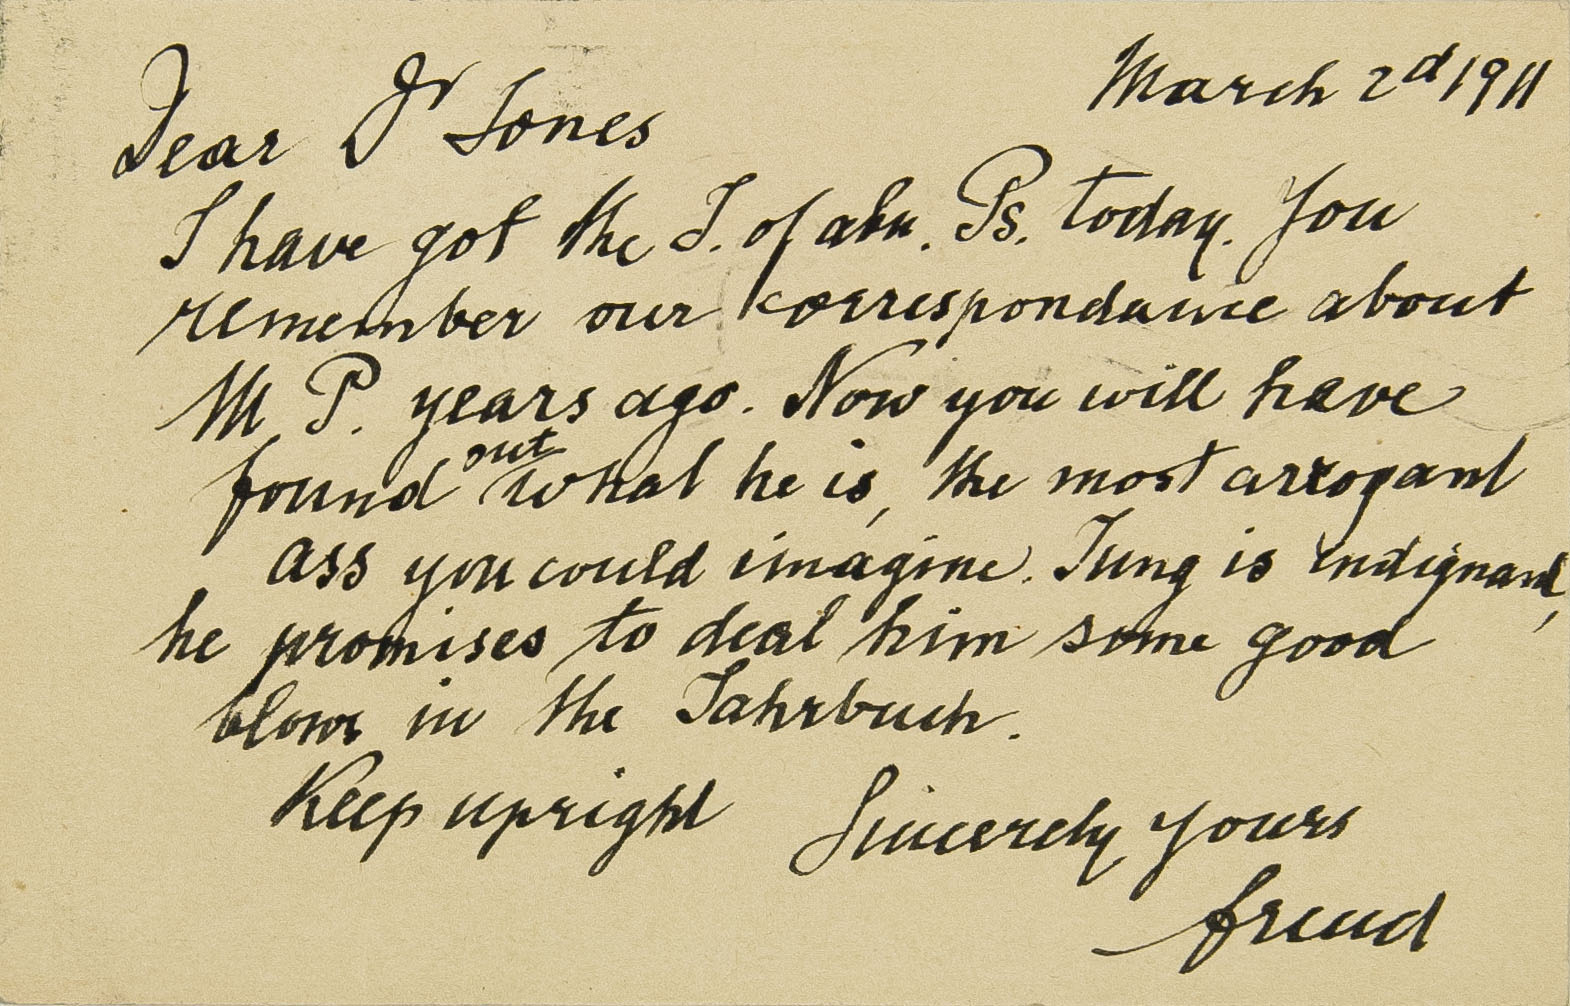 March 2d 1911
Dear Dr Jones
I have got the J. of abn. Ps. today. You
remember our correspondance about
M P. years ago. Now you will have
found out what he is, the most arrogant
ass you could imagine. Jung is indignant,
he promises to deal him some good
blows in the Jahrbuch.
Keep upright Sincerely yours
Freud